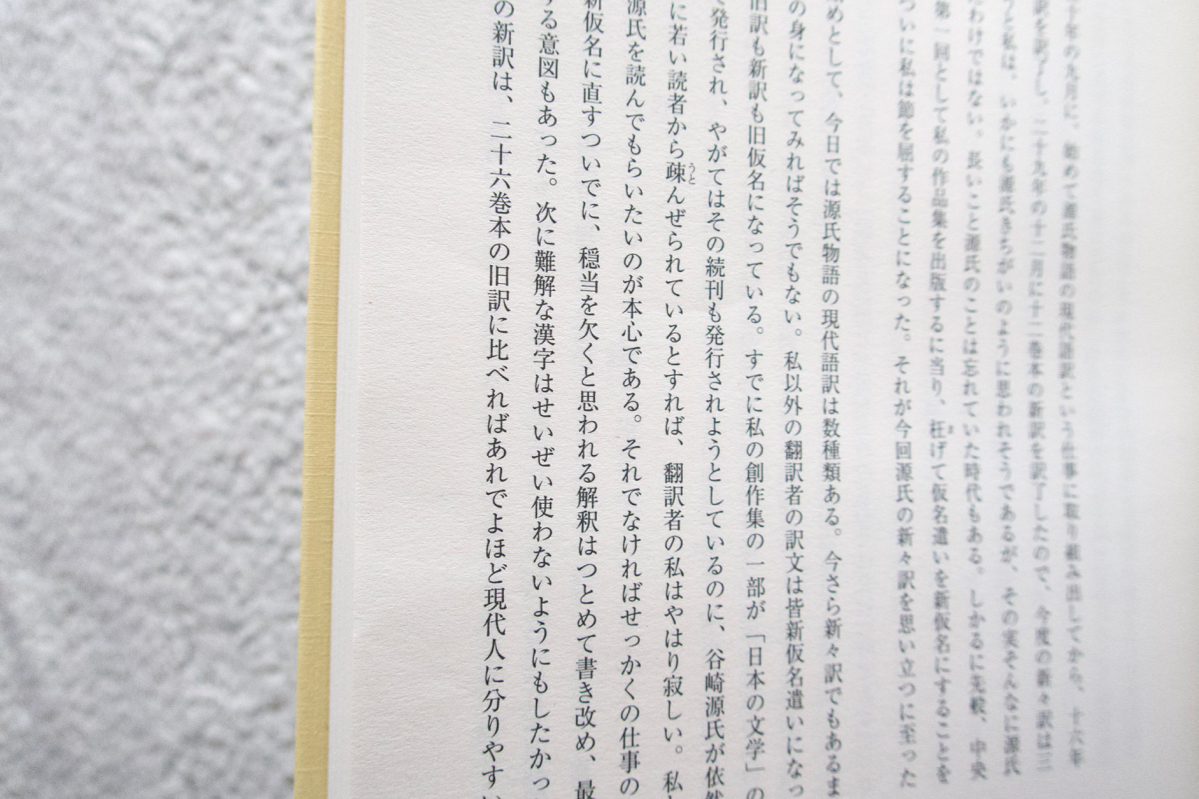 十年の九月に、始めて源氏物語の現代語訳という仕事に取り組み出してから、十六年
訳を訳了し、二十九年の十二月に十二巻本の新訳を訳了したので、今度の新々訳は三
うと私は、いかにも源氏きちがいのように思われそうであるが、その実そんなに源氏
わけではない。長いこと源氏のことは忘れていた時代もある。しかるに先般、中央
第一回として私の作品集を出版するに当り、枉げて仮名遣いを新仮名にすることを
ついに私は節を屈することになった。それが今回源氏の新々訳を思い立つに至った
めとして、今日では源氏物語の現代語訳は数種類ある。今さら新々訳でもあるま
の身になってみればそうでもない。私以外の翻訳者の訳文は皆新仮名遣いになっ
旧訳も新訳も旧仮名になっている。すでに私の創作集の一部が「日本の文学」の
で発行され、やがてはその続刊も発行されようとしているのに、谷崎源氏が依然
に若い読者から疎んぜられているとすれば、翻訳者の私はやはり寂しい。私
源氏を読んでもらいたいのが本心である。それでなければせっかくの仕事の
新仮名に直すついでに、穏当を欠くと思われる解釈はつとめて書き改め、最
する意図もあった。次に難解な漢字はせいぜい使わないようにもしたかっ
の新訳は、二十六巻本の旧訳に比べればあれでよほど現代人に分りやすい